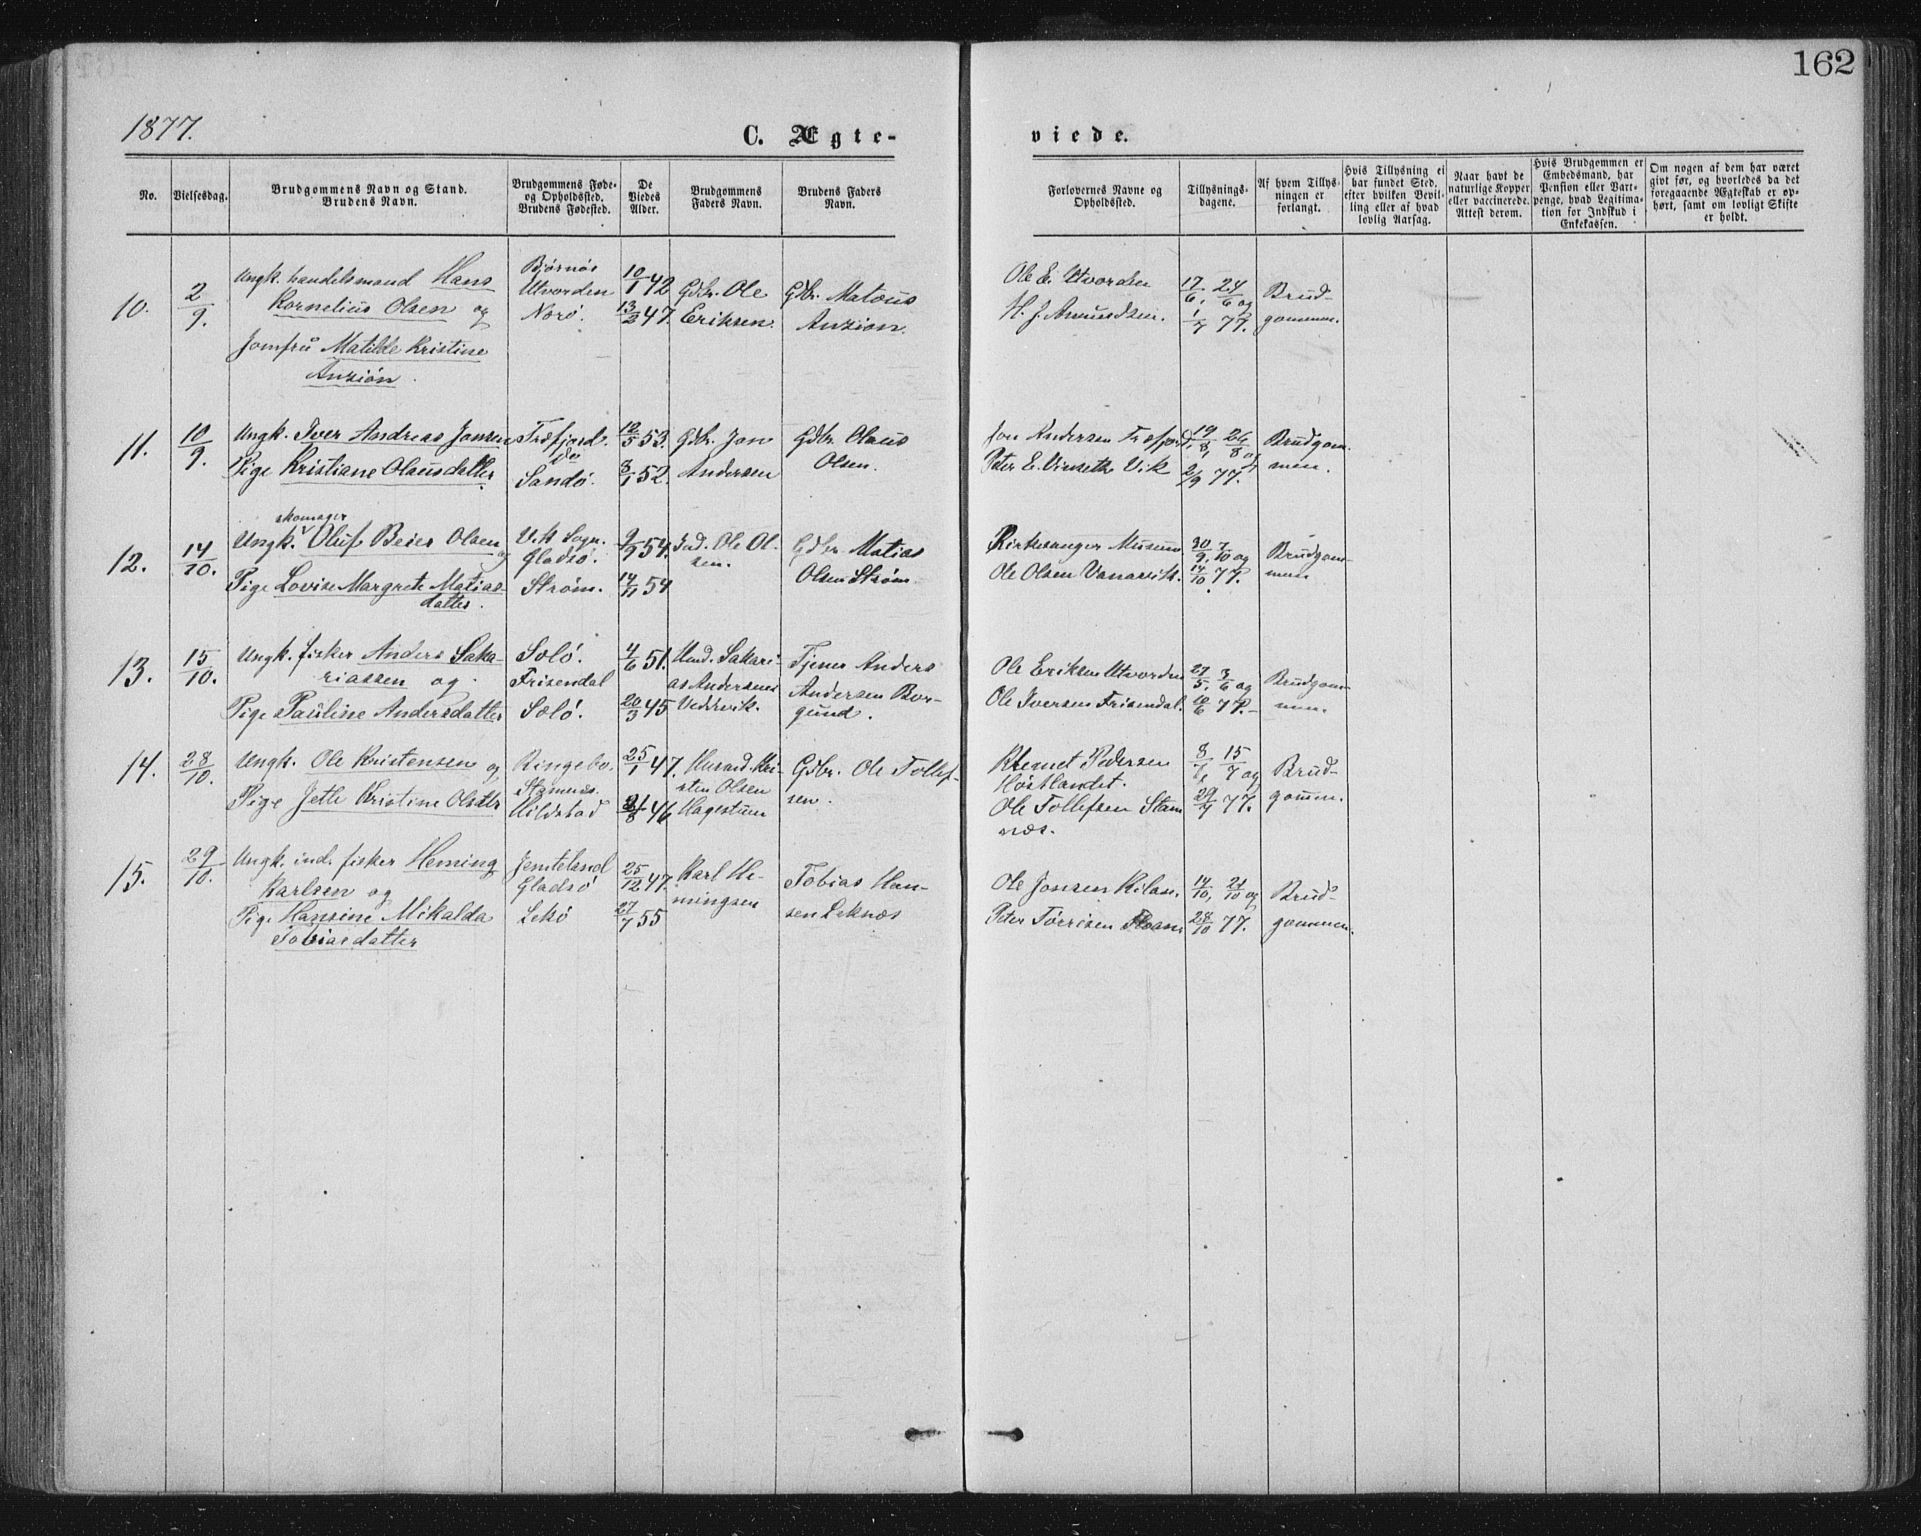 162
1877.
C. Ægte-
viede.
No.
Vielsesdag.
Brudgommens Navn og Stand.
Brudens Navn.
Brudgommens Føde-
og Opholdssted.
Brudens Fødested.
De
Viedes
Alder.
Brudgommens
Faders Navn.
Brudens Faders
Navn.
Forlovernes Navne og
Opholdssted.
Tillysnings-
dagene.
Af hvem Tillys-
ningen er
forlangt.
Hvis Tillysning ei
har fundet Sted,
efter hvilken Bevil-
ling eller af hvad
lovlig Aarsag.
Naar havt de
naturlige Kopper
eller vaccinerede.
Attest derom.
Hvis Brudgommen er
Embedsmand, har
Pension eller Vart-
penge, hvad Legitima-
tion for Indskud i
Enkekassen.
Om nogen af dem har været
gift før, og hvorledes da det
foregaaende Ægteskab er op-
hørt, samt om lovligt Skifte
er holdt.
10.
2/9.
Ungk. handelsmand Hans
Kornelius Olsen og
Jomfru Matilde Kristine
Anzion.
Bjørnös
Utvorden
Norö.
10/1 42
13/2 47.
Gdbr. Ole
Eriksen.
Gbr. Matæus
Anzion.
Ole E. Utvorden
H. J. Amundsen.
17/6, 24/6 og
1/7 77.
Brud-
gommen.
11.
10/9.
Ungk. Iver Andreas Jonsen
Pige Kristiane Olausdatter.
Træfjord.
Sandö.
12/5 53.
3/1 52.
Gdbr. Jon
Andersen
Gdbr Olaus
Olsen.
Jon Andersen Træfjord,
Peter E. Vinseth Vik
19/8, 26/8 og
2/9 77.
Brudgom-
men.
12.
14/10.
skomager
Ungk. Oluf Beier Olsen
og
Pige Lovise Margrete Matias-
datter.
Vik Sogn.
Gladsö.
Strøm.
9/9 54.
14/11 54
Ind. Ole Ol-
sen.
Gdbr. Matias
Olsen Strøm.
Kirkesanger Museum
Ole Olsen Vanarvik.
30/9, 7/10 og
14/10 77.
Brudgom-
men
13.
15/10.
Ungk. fisker Anders Saka-
riassen og
Pige Pauline Andersdatter
Solö.
Frisendal
Solö.
4/6 51.
20/3 45
Hmd. Sakari-
as Andersens
Veddevik.
Tjener Anders
Andersen Bor-
gund.
Ole Eriksen Utvorden
Ole Iversen Frisendal.
27/5, 3/6 og
10/6 77.-
Brudgom-
men.
14.
28/10.
Ungk. Ole Kristensen og
Pige Jette Kristine Olsdtr
Ringebo.
Stamnæs.
Hildstad
25/1 47.
31/8 46
Husmd. Kri-
sten Olsen
Hagestuen
Gdbr. Ole Tollef-
sen.
Klemet Pedersen
Höstlandet.
Ole Tollefsen Stam
næs.
8/7, 15/7 og
29/7 77.
Brud-
gomm.
15.
29/10.
Ungk. ind. fisker Heming
Karlsen og
Pige Hansine Mikalda
Tobiasdatter
Jemteland
Gladsö
Lekö
25/12 47.
27/7 55
Karl He-
mingsen
Tobias Han-
sen Leknæs
Ole Jonsen Kilan,
Peter Törrisen Floan
14/10, 21/10 og
28/10 77.
Brud-
gommen.